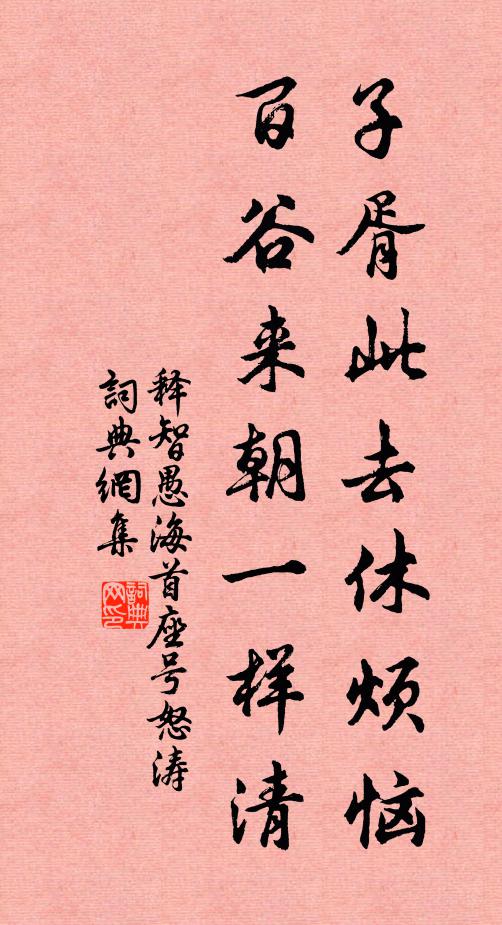 子胥此去休烦恼
百谷来朝一样清
释智愚海首座号怒涛
詞典網集
詞典网印